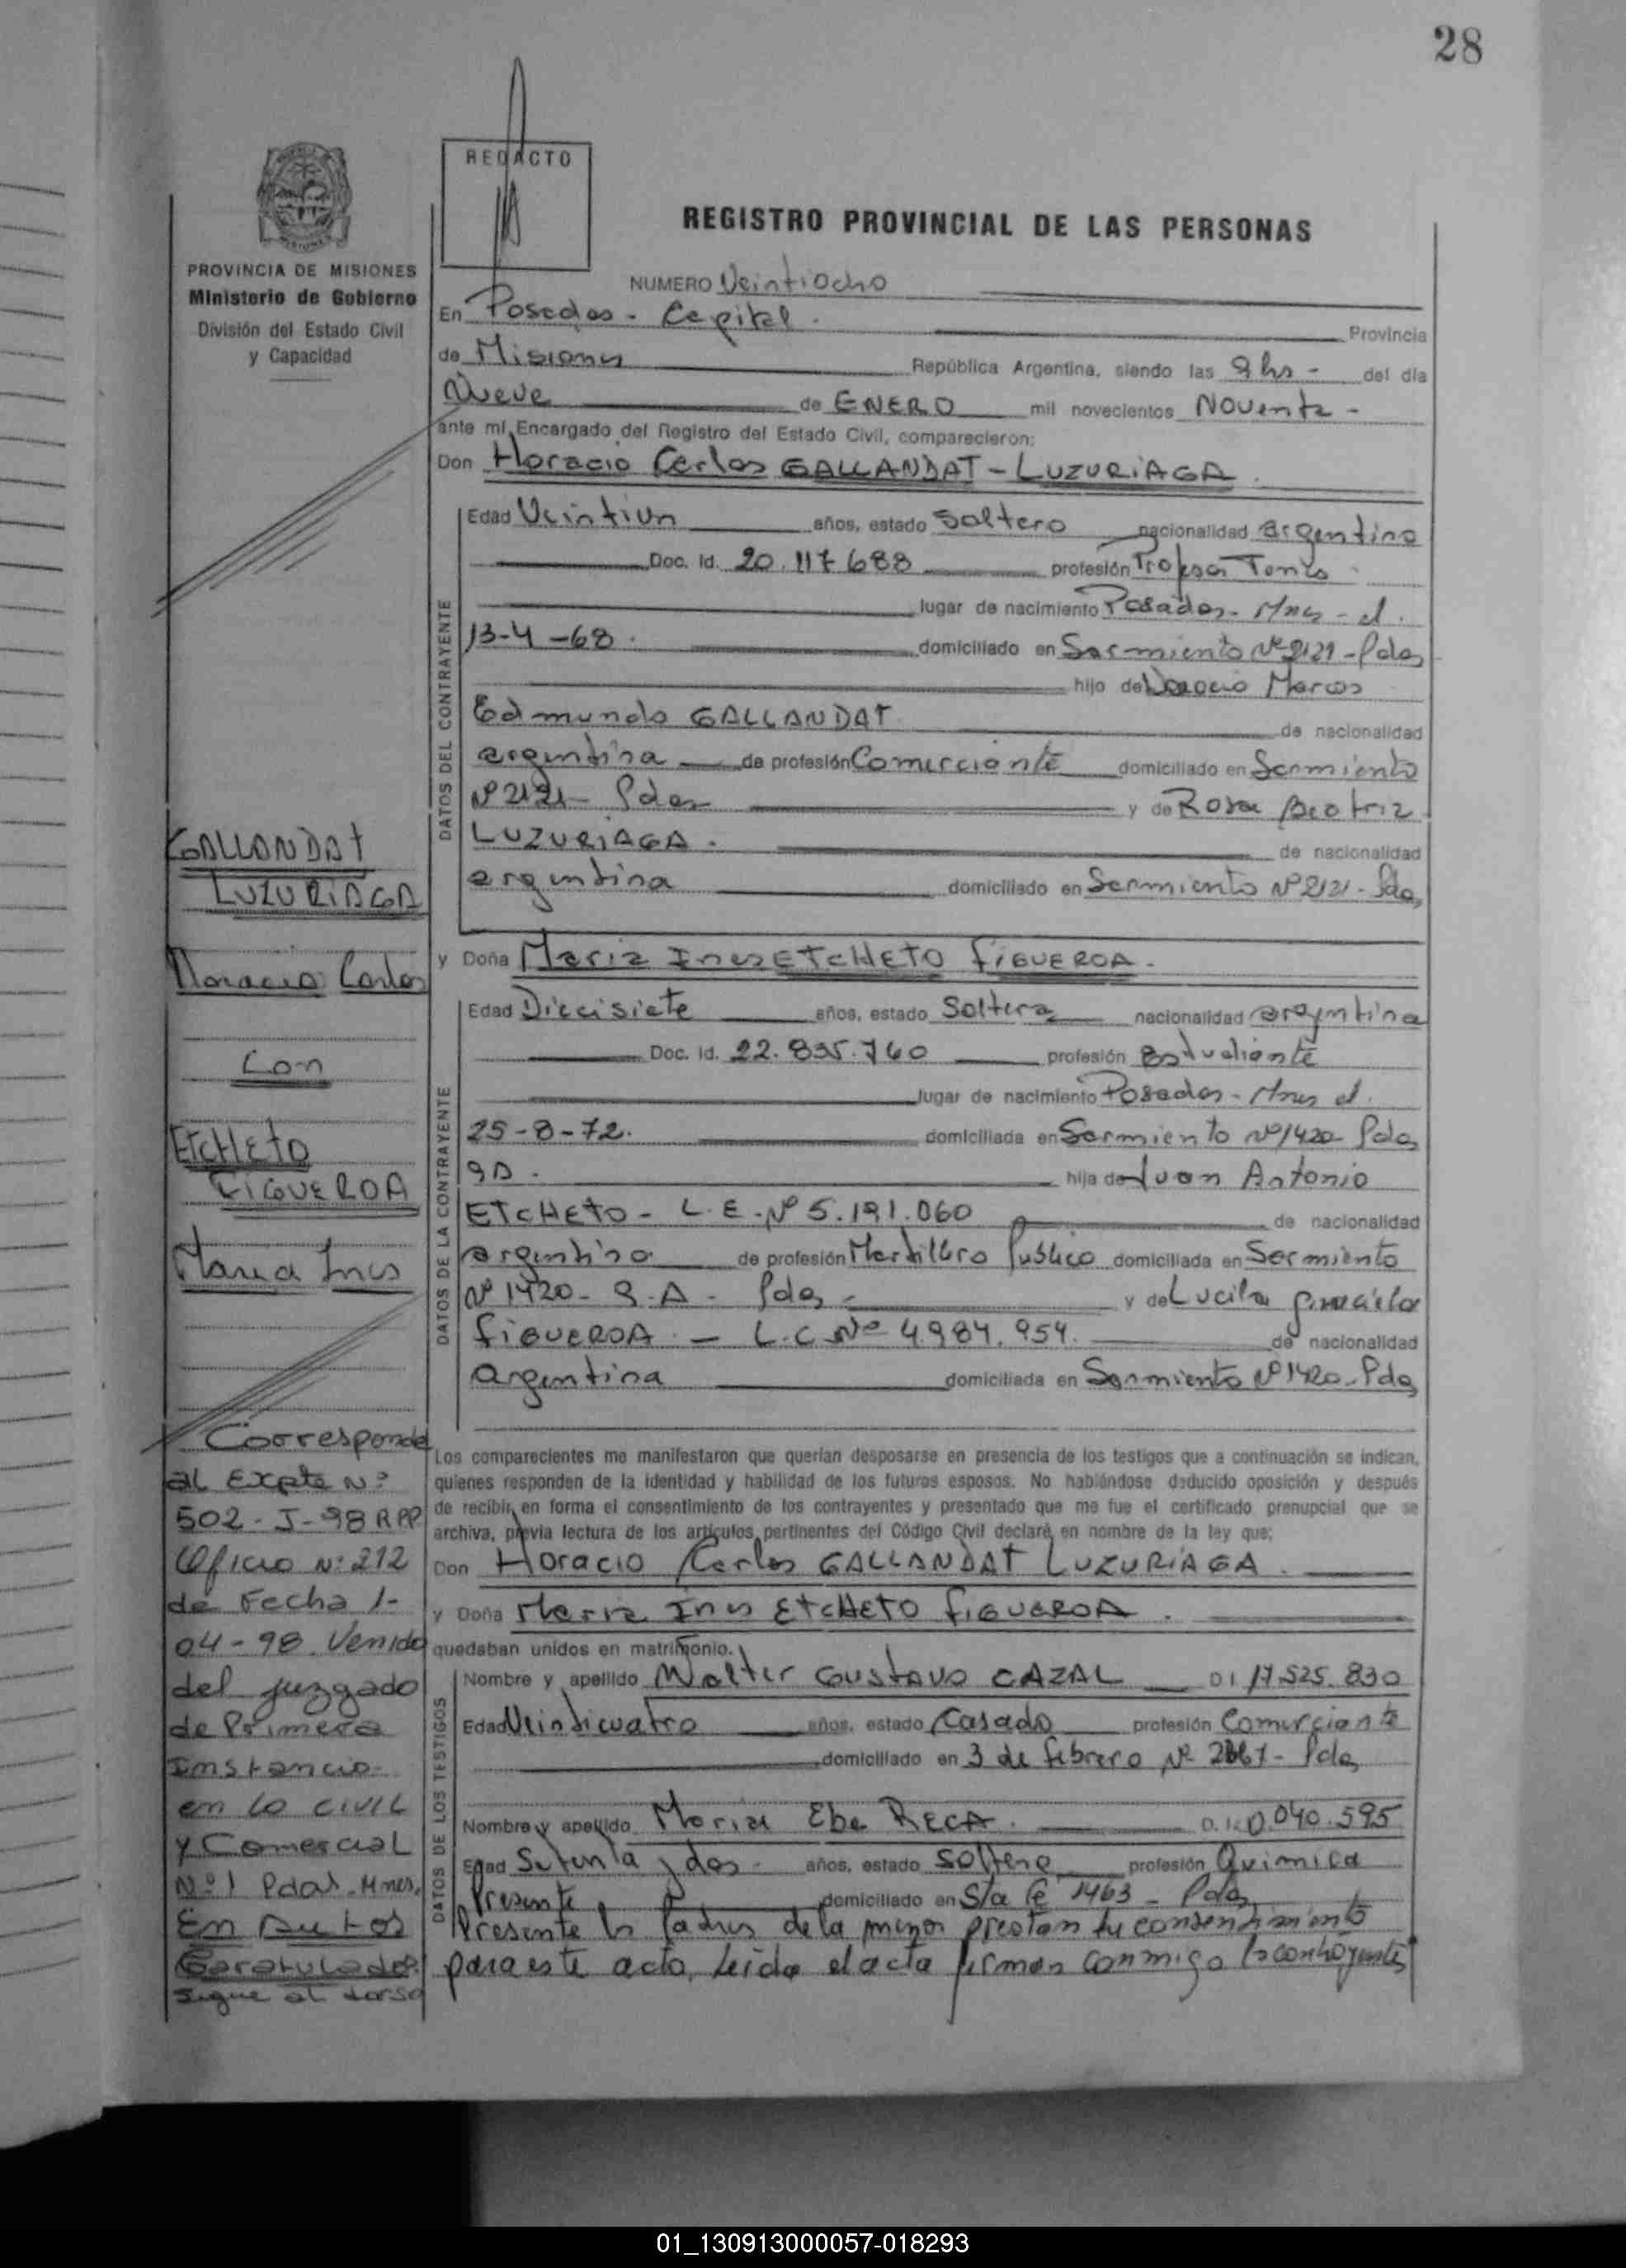 28
REDACTO
REGISTRO PROVINCIAL DE LAS PERSONAS
PROVINCIA DE MISIONES
Ministerio de Gobierno
División del Estado Civil
y Capacidad
NUMERO Veintiocho
En Posadas - Capital - Provincia
de Misiones República Argentina, siendo las 9 hs - del día
Nueve de ENERO mil novecientos Noventa -
ante mí, Encargado del Registro del Estado Civil, comparecieron:
Don Horacio Carlos GALLANDAT - LUZURIAGA.
DATOS DEL CONTRAYENTE
Edad Veintiun años, estado Soltero nacionalidad argentino
Doc. Id. 20.117.688 profesión Profesor Tenis
lugar de nacimiento Posadas - Mnes - el.
13-4-68. domiciliado en Sarmiento Nº 2121 - Pdas
hijo de Horacio Marcos
Edmundo GALLANDAT de nacionalidad
argentina de profesión Comerciante domiciliado en Sarmiento
Nº 2121 - Pdas y de Rosa Beatriz
LUZURIAGA. de nacionalidad
argentina domiciliado en Sarmiento Nº 2121 - Pdas
y Doña Maria Ines ETCHETO FIGUEROA.
DATOS DE LA CONTRAYENTE
Edad Diecisiete años, estado Soltera nacionalidad argentina
Doc. Id. 22.835.760 profesión Estudiante
lugar de nacimiento Posadas - Mnes el.
25-8-72. domiciliada en Sarmiento Nº 1420 Pdas
9D. hija de Juan Antonio
ETCHETO - L.E. Nº 5.191.060 de nacionalidad
argentino de profesión Martillero Publico domiciliada en Sarmiento
Nº 1420 - 9.A - Pdas - y de Lucila Graciela
FIGUEROA. - L.C. Nº 4.984.954. de nacionalidad
Argentina domiciliada en Sarmiento Nº 1420 - Pdas
Los comparecientes me manifestaron que querían desposarse en presencia de los testigos que a continuación se indican,
quienes responden de la identidad y habilidad de los futuros esposos. No habiéndose deducido oposición y después
de recibir en forma el consentimiento de los contrayentes y presentado que me fue el certificado prenupcial que se
archiva, previa lectura de los artículos pertinentes del Código Civil declaré en nombre de la ley que;
Don Horacio Carlos GALLANDAT LUZURIAGA.
y Doña Maria Ines ETCHETO FIGUEROA.
quedaban unidos en matrimonio.
DATOS DE LOS TESTIGOS
Nombre y apellido Walter GUSTAVO CAZAL DI 17.525.830
Edad Veinticuatro años, estado Casado profesión Comerciante
domiciliado en 3 de febrero Nº - Pdas
Nombre y apellido Maria Ebe RECA. 040.595
Edad Setenta y dos - años, estado soltera profesión Quimica
Presente domiciliado en Sta Fe 1463 - Pdas
Presente los Padres de la menor prestan su consentimiento
para este acto, leida el acta firman conmigo los contrayentes
GALLANDAT
LUZURIAGA
Horacio Carlos
Con
ETCHETO
FIGUEROA
Maria Ines
Corresponde
al Expte Nº
502 - J - 98 RPP
Oficio Nº 212
de Fecha 1-
04-98 Venido
del juzgado
de Primera
Instancia
en lo CIVIL
y Comercial
Nº 1 Pdas - Mnes,
En Autos
Caratulados
sigue al dorso
01_130913000057-018293